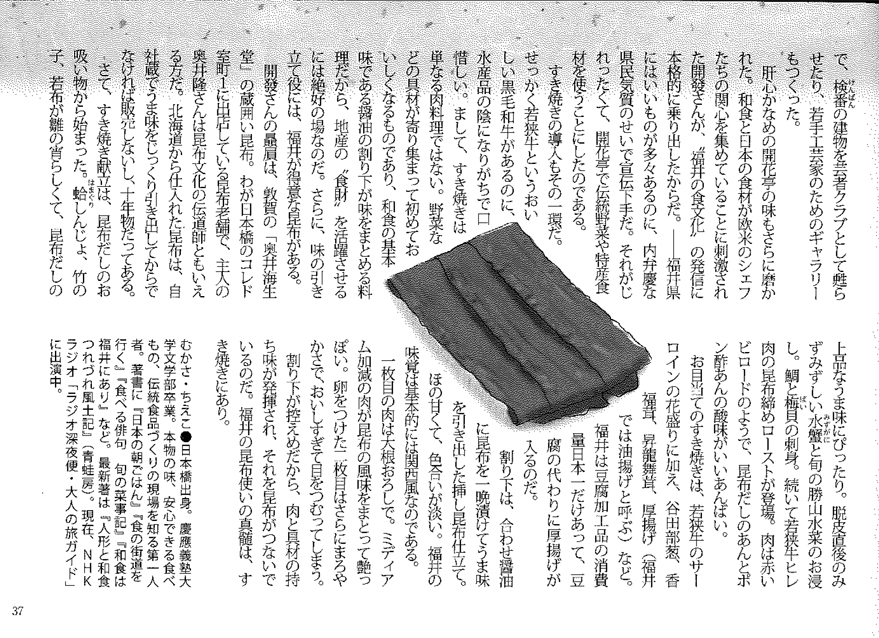 で、検番の建物を芸者クラブとして甦ら
せたり、若手工芸家のためのギャラリー
もつくった。
肝心かなめの開花亭の味もさらに磨か
れた。和食と日本の食材が欧米のシェフ
たちの関心を集めていることに刺激され
た開發さんが、〝福井の食文化〟の発信に
本格的に乗り出したからだ。――福井県
にはいいものが多々あるのに、内弁慶な
県民気質のせいで宣伝下手だ。それがじ
れったくて、開花亭で伝統野菜や特産食
材を使うことにしたのである。
すき焼きの導入もその一環だ。
せっかく若狭牛というおい
しい黒毛和牛があるのに、
水産品の陰になりがちで口
惜しい。まして、すき焼きは
単なる肉料理ではない。野菜な
どの具材が寄り集まって初めてお
いしくなるものであり、和食の基本
味である醤油の割り下が味をまとめる料
理だから、地産の〝食財〟を活躍させる
には絶好の場なのだ。さらに、味の引き
立て役には、福井が得意な昆布がある。
開發さんの贔屓は、敦賀の「奥井海生
堂」の蔵囲い昆布。わが日本橋のコレド
室町1に出店している昆布老舗で、主人の
奥井隆さんは昆布文化の伝道師ともいえ
る方だ。北海道から仕入れた昆布は、自
社蔵でうま味をじっくり引き出してからで
なければ販売しないし、十年物だってある。
さて、すき焼き献立は、昆布だしのお
吸い物から始まった。蛤しんじょ、竹の
子、若布が雛の宵らしくて、昆布だしの
上品なうま味にぴったり。脱皮直後のみ
ずみずしい水蟹と旬の勝山水菜のお浸
し。鯛と梅貝の刺身。続いて若狭牛ヒレ
肉の昆布締めローストが登場。肉は赤い
ビロードのようで、昆布だしのあんとポ
ン酢あんの酸味がいいあんばい。
お目当てのすき焼きは、若狭牛のサー
ロインの花盛りに加え、谷田部葱、香
福茸、昇龍舞茸、厚揚げ（福井
では油揚げと呼ぶ）など。
福井は豆腐加工品の消費
量日本一だけあって、豆
腐の代わりに厚揚げが
入るのだ。
割り下は、合わせ醤油
に昆布を一晩漬けてうま味
を引き出した挿し昆布仕立て。
ほの甘くて、色合いが淡い。福井の
味覚は基本的には関西風なのである。
一枚目の肉は大根おろしで。ミディア
ム加減の肉が昆布の風味をまとって艶っ
ぽい。卵をつけた二枚目はさらにまろや
かさで、おいしすぎて目をつむってしまう。
割り下が控えめだから、肉と具材の持
ち味が発揮され、それを昆布がつないで
いるのだ。福井の昆布使いの真髄は、す
き焼きにあり。
むかさ・ちえこ●日本橋出身。慶應義塾大
学文学部卒業。本物の味、安心できる食べ
もの、伝統食品づくりの現場を知る第一人
者。著書に『日本の朝ごはん』『食の街道を
行く』『食べる俳句　旬の菜事記』『和食は
福井にあり』など。最新著は『人形と和食
つれづれ風土記』（青蛙房）。現在、ＮＨＫ
ラジオ「ラジオ深夜便・大人の旅ガイド」
に出演中。
37